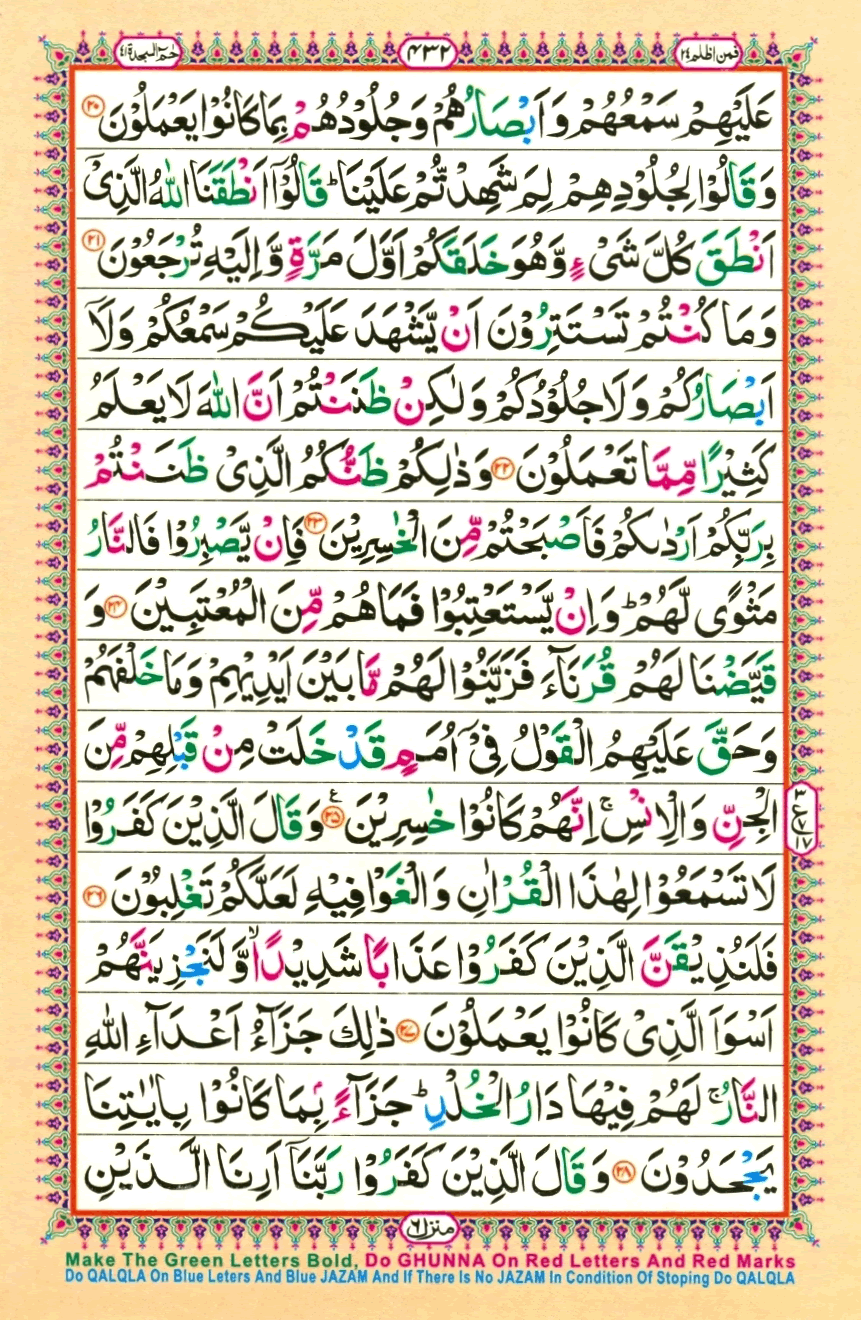 فمن اظلم ٢٤
٤٣٢
حٰمٓ السجدة ٤١
عَلَيْهِمْ سَمْعُهُمْ وَاَبْصَارُهُمْ وَجُلُوْدُهُمْ بِمَا كَانُوْا يَعْمَلُوْنَ ﴿۲۰﴾
وَقَالُوْا لِجُلُوْدِهِمْ لِمَ شَهِدْتُّمْ عَلَيْنَا ؕ قَالُوْۤا اَنْطَقَنَا اللّٰهُ الَّذِيْۤ
اَنْطَقَ كُلَّ شَيْءٍ وَّهُوَ خَلَقَكُمْ اَوَّلَ مَرَّةٍ وَّاِلَيْهِ تُرْجَعُوْنَ ﴿۲۱﴾
وَمَا كُنْتُمْ تَسْتَتِرُوْنَ اَنْ يَّشْهَدَ عَلَيْكُمْ سَمْعُكُمْ وَلَاۤ
اَبْصَارُكُمْ وَلَا جُلُوْدُكُمْ وَلٰكِنْ ظَنَنْتُمْ اَنَّ اللّٰهَ لَا يَعْلَمُ
كَثِيْرًا مِّمَّا تَعْمَلُوْنَ ﴿۲۲﴾ وَذٰلِكُمْ ظَنُّكُمُ الَّذِيْ ظَنَنْتُمْ
بِرَبِّكُمْ اَرْدٰىكُمْ فَاَصْبَحْتُمْ مِّنَ الْخٰسِرِيْنَ ﴿۲۳﴾ فَاِنْ يَّصْبِرُوْا فَالنَّارُ
مَثْوًى لَّهُمْ ؕ وَاِنْ يَّسْتَعْتِبُوْا فَمَا هُمْ مِّنَ الْمُعْتَبِيْنَ ﴿۲۴﴾ وَ
قَيَّضْنَا لَهُمْ قُرَنَآءَ فَزَيَّنُوْا لَهُمْ مَّا بَيْنَ اَيْدِيْهِمْ وَمَا خَلْفَهُمْ
وَحَقَّ عَلَيْهِمُ الْقَوْلُ فِيْۤ اُمَمٍ قَدْ خَلَتْ مِنْ قَبْلِهِمْ مِّنَ
الْجِنِّ وَالْاِنْسِ ۚ اِنَّهُمْ كَانُوْا خٰسِرِيْنَ ﴿۲۵﴾ ع وَقَالَ الَّذِيْنَ كَفَرُوْا
٣ ع ١٧
لَا تَسْمَعُوْا لِهٰذَا الْقُرْاٰنِ وَالْغَوْا فِيْهِ لَعَلَّكُمْ تَغْلِبُوْنَ ﴿۲۶﴾
فَلَنُذِيْقَنَّ الَّذِيْنَ كَفَرُوْا عَذَابًا شَدِيْدًا ۙ وَّلَنَجْزِيَنَّهُمْ
اَسْوَاَ الَّذِيْ كَانُوْا يَعْمَلُوْنَ ﴿۲۷﴾ ذٰلِكَ جَزَآءُ اَعْدَآءِ اللّٰهِ
النَّارُ ۚ لَهُمْ فِيْهَا دَارُ الْخُلْدِ ؕ جَزَآءًۢ بِمَا كَانُوْا بِاٰيٰتِنَا
يَجْحَدُوْنَ ﴿۲۸﴾ وَقَالَ الَّذِيْنَ كَفَرُوْا رَبَّنَاۤ اَرِنَا الَّذَيْنِ
منزل ٦
Make The Green Letters Bold, Do GHUNNA On Red Letters And Red Marks
Do QALQLA On Blue Leters And Blue JAZAM And If There Is No JAZAM In Condition Of Stoping Do QALQLA